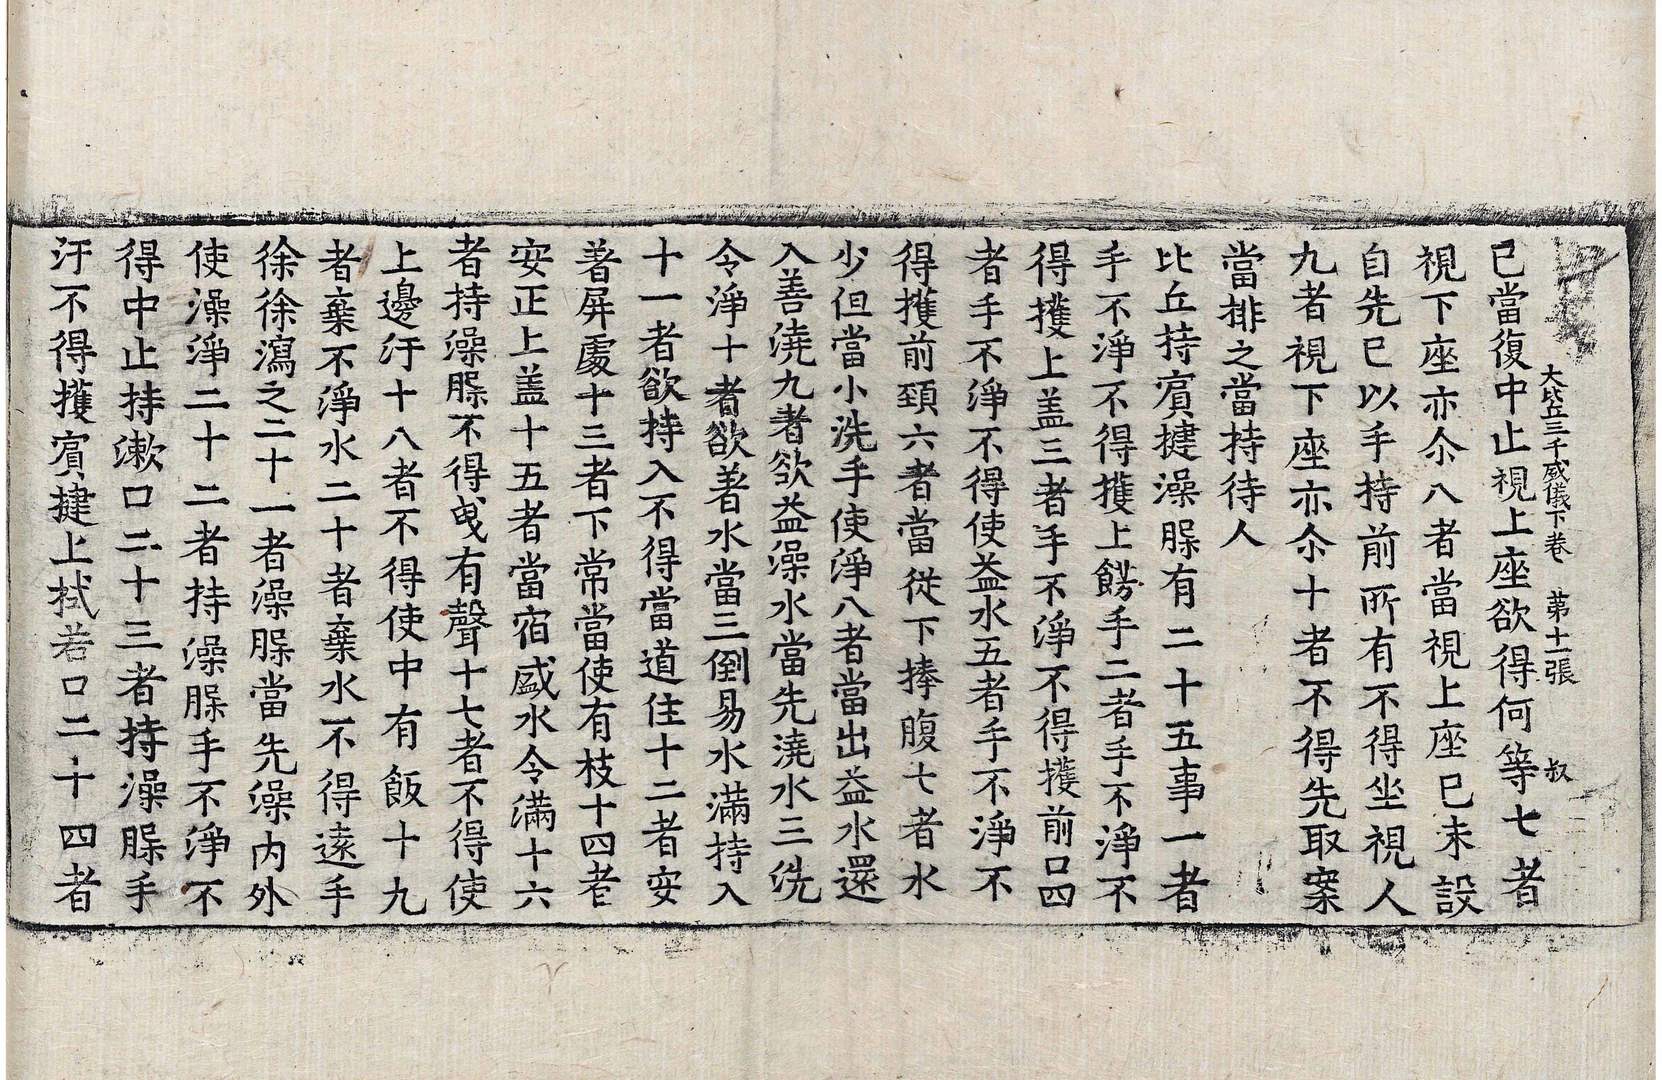 大比丘三千威儀下卷 苐十一張 叔
已當復中止視上座欲得何等七者
視下座亦尒八者當視上座已未設
自先已以手持前所有不得坐視人
九者視下座亦尒十者不得先取案
當排之當持待人
比丘持賔揵澡腂有二十五事一者
手不淨不得擭上餝手二者手不淨不
得擭上盖三者手不淨不得擭前口四
者手不淨不得使益水五者手不淨不
得擭前頸六者當從下捧腹七者水
少但當小洗手使淨八者當出益水還
入善澆九者欲益澡水當先澆水三洗
令淨十者欲著水當三倒易水滿持入
十一者欲持入不得當道住十二者安
著屏處十三者下常當使有枝十四者
安正上盖十五者當宿盛水令滿十六
者持澡腂不得曵有聲十七者不得使
上邊汙十八者不得使中有飯十九
者棄不淨水二十者棄水不得遠手
徐徐瀉之二十一者澡腂當先澡內外
使澡淨二十二者持澡腂手不淨不
得中止持漱口二十三者持澡腂手
汙不得擭賔揵上拭若口二十四者